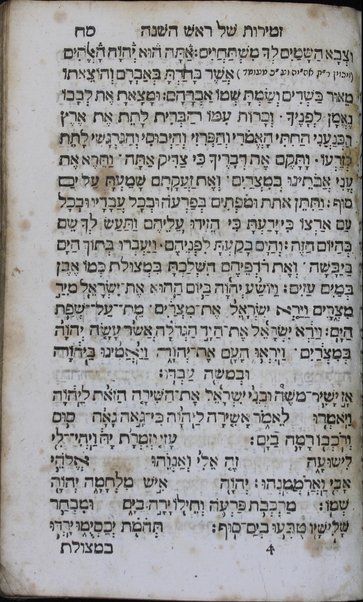 זמירות של ראש השנה סח
וצבא השמים לך משתחוים: אתה הוא יהוה האלהים
אשר בחרת באברם והוצאתו
מאור כשדים ושמת שמו אברהם: ומצאת את לבבו
נאמן לפניך. וכרות עמו הברית לתת את ארץ
הכנעני החתי האמרי והפרזי והיבוסי והגרגשי לתת
לזרעו. ותקם את דבריך כי צדיק אתה. ותרא את
עני אבתינו במצרים. ואת זעקתם שמעת על ים
סוף: ותתן אתת ומפתים בפרעה ובכל עבדיו ובכל
עם ארצו כי ידעת כי הזידו עליהם ותעש לך שם
כהיום הזה: והים בקעת לפניהם. ויעברו בתוך הים
ביבשה. ואת רדפיהם השלכת במצולת כמו אבן
במים עזים: ויושע יהוה ביום ההוא את ישראל מיד
מצרים וירא ישראל את מצרים מת על שפת
הים: וירא ישראל את היד הגדלה אשר עשה יהוה
במצרים וייראו העם את יהוה ויאמינו ביהוה
ובמשה עבדו:
אז ישיר משה ובני ישראל את השירה הזאת ליהוה
ויאמרו לאמר אשירה ליהוה כי גאה גאה סוס
ורכבו רמה בים: עזי וזמרת יה ויהי לי
לישועה זה אלי ואנוהו אלהי
אבי וארממנהו: יהוה איש מלחמה יהוה
שמו: מרכבת פרעה וחילו ירה בים ומבחר
שלישיו טבעו בים סוף: תהמת יכסימו ירדו
4 במצולת